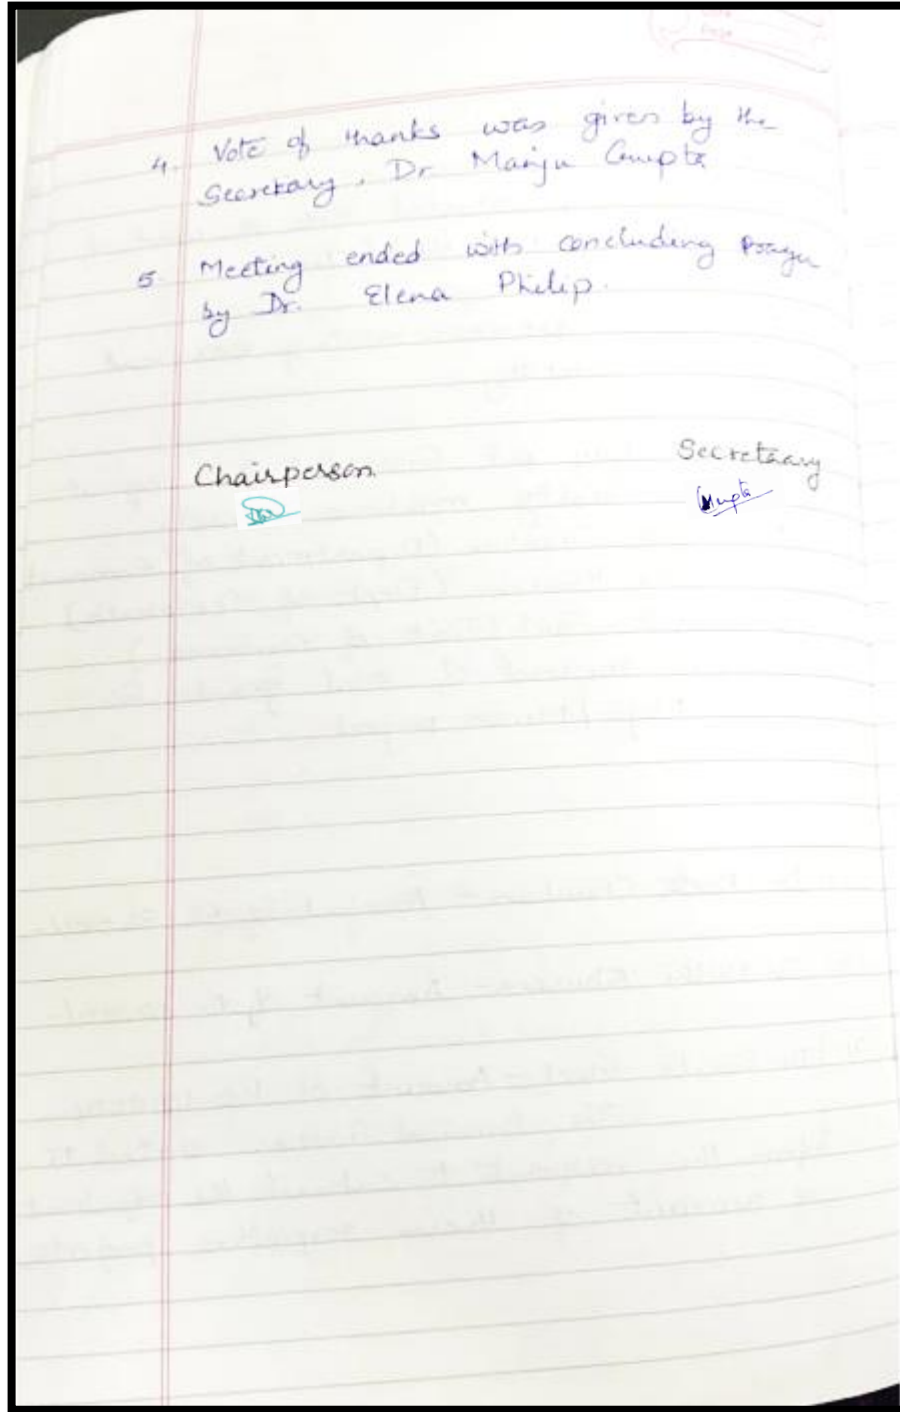 4. Vote of thanks was given by the
Secretary, Dr Manju Gupta
5. Meeting ended with concluding prayer
by Dr. Elena Philip.
Chairperson
Secretaary
Gupta